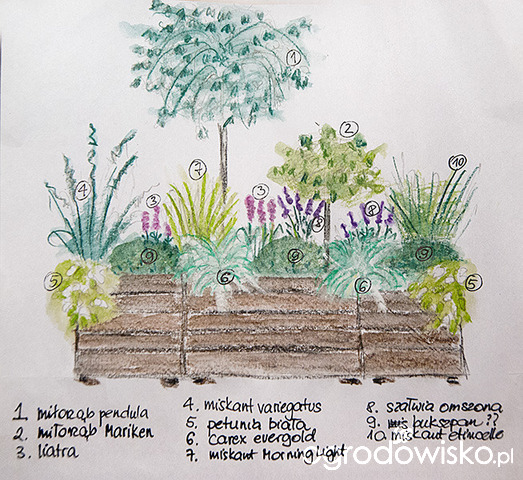 1
2
7
10
4
3
3
8
8
9
9
9
5
6
6
5
1 miłorząb pendula
2. miłorząb Mariken
3. liatra
4. miskant variegatus
5. petunia biała
6. carex evergold
7. miskant Morning Light
8. szałwia omszona
9. bukszpan ??
10. miskant
ogrodowisko.pl